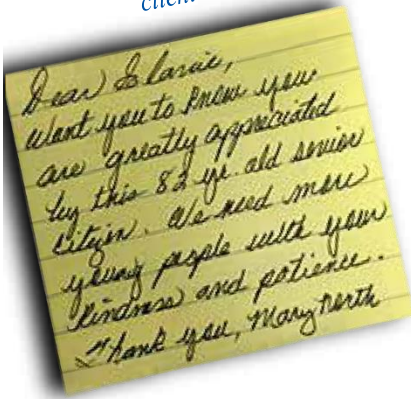 client
Dear Elaine,
Want you to know you
are greatly appreciated
by this 82 yr. old senior
citizen. We need more
young people with your
kindness and patience.
Thank you, Mary North